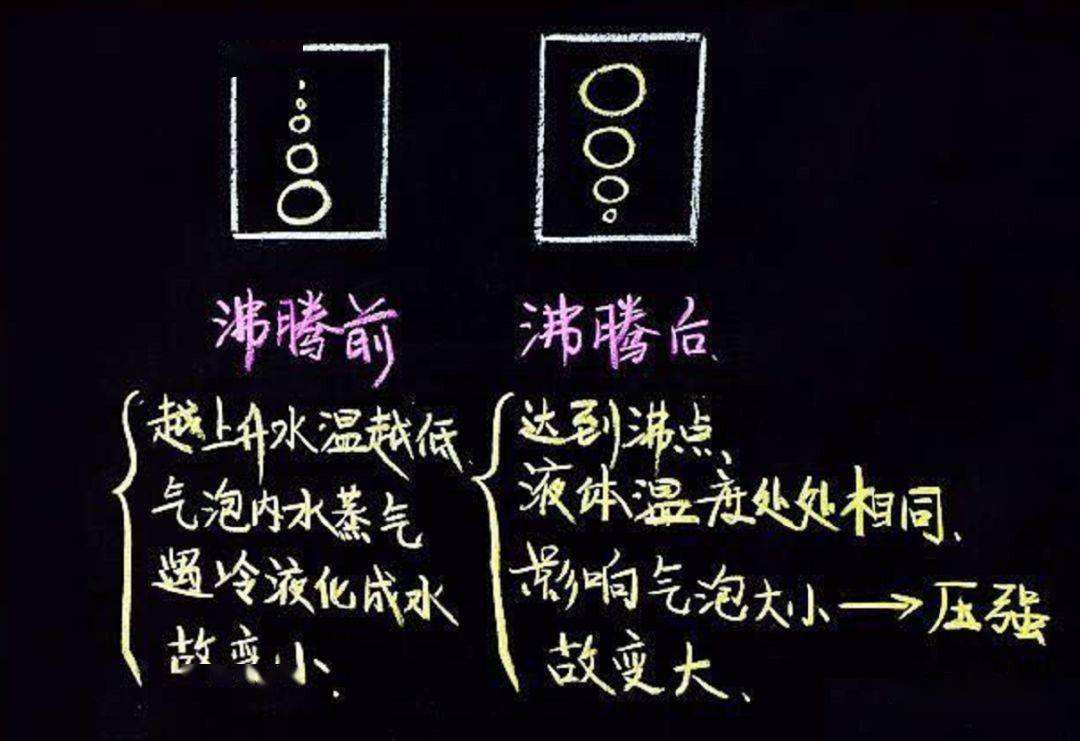 沸腾前
越上升水温越低
气泡内水蒸气
遇冷液化成水
故变小.
沸腾后.
达到沸点、
液体温度处处相同.
影响气泡大小→压强
故变大、